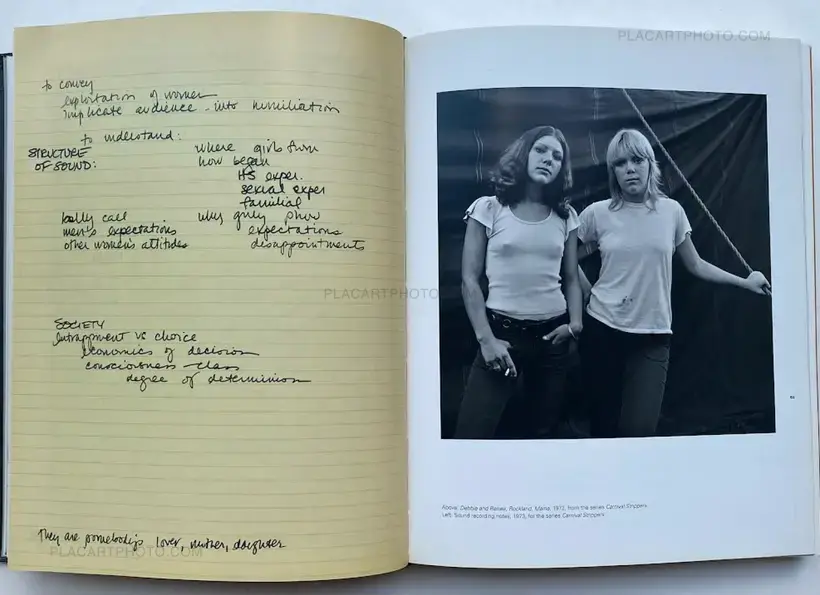 to convey
exploitation of women
implicate audience - into humiliation
to understand:
STRUCTURE
OF SOUND:
where girls from
how began
HS exper.
sexual exper
familial
bally call
men's expectations
other women's attitudes
why girly show
expectations
disappointments
SOCIETY
entrapment vs choice
economics of decision
consciousness - class
degree of determinism
They are somebody's lover, mother, daughter
PLACARTPHOTO.COM
PLACARTPHOTO.COM
PLACARTPHOTO.COM
Above: Debbie and Renee, Rockland, Maine, 1972, from the series Carnival Strippers
Left: Sound recording notes, 1973, for the series Carnival Strippers